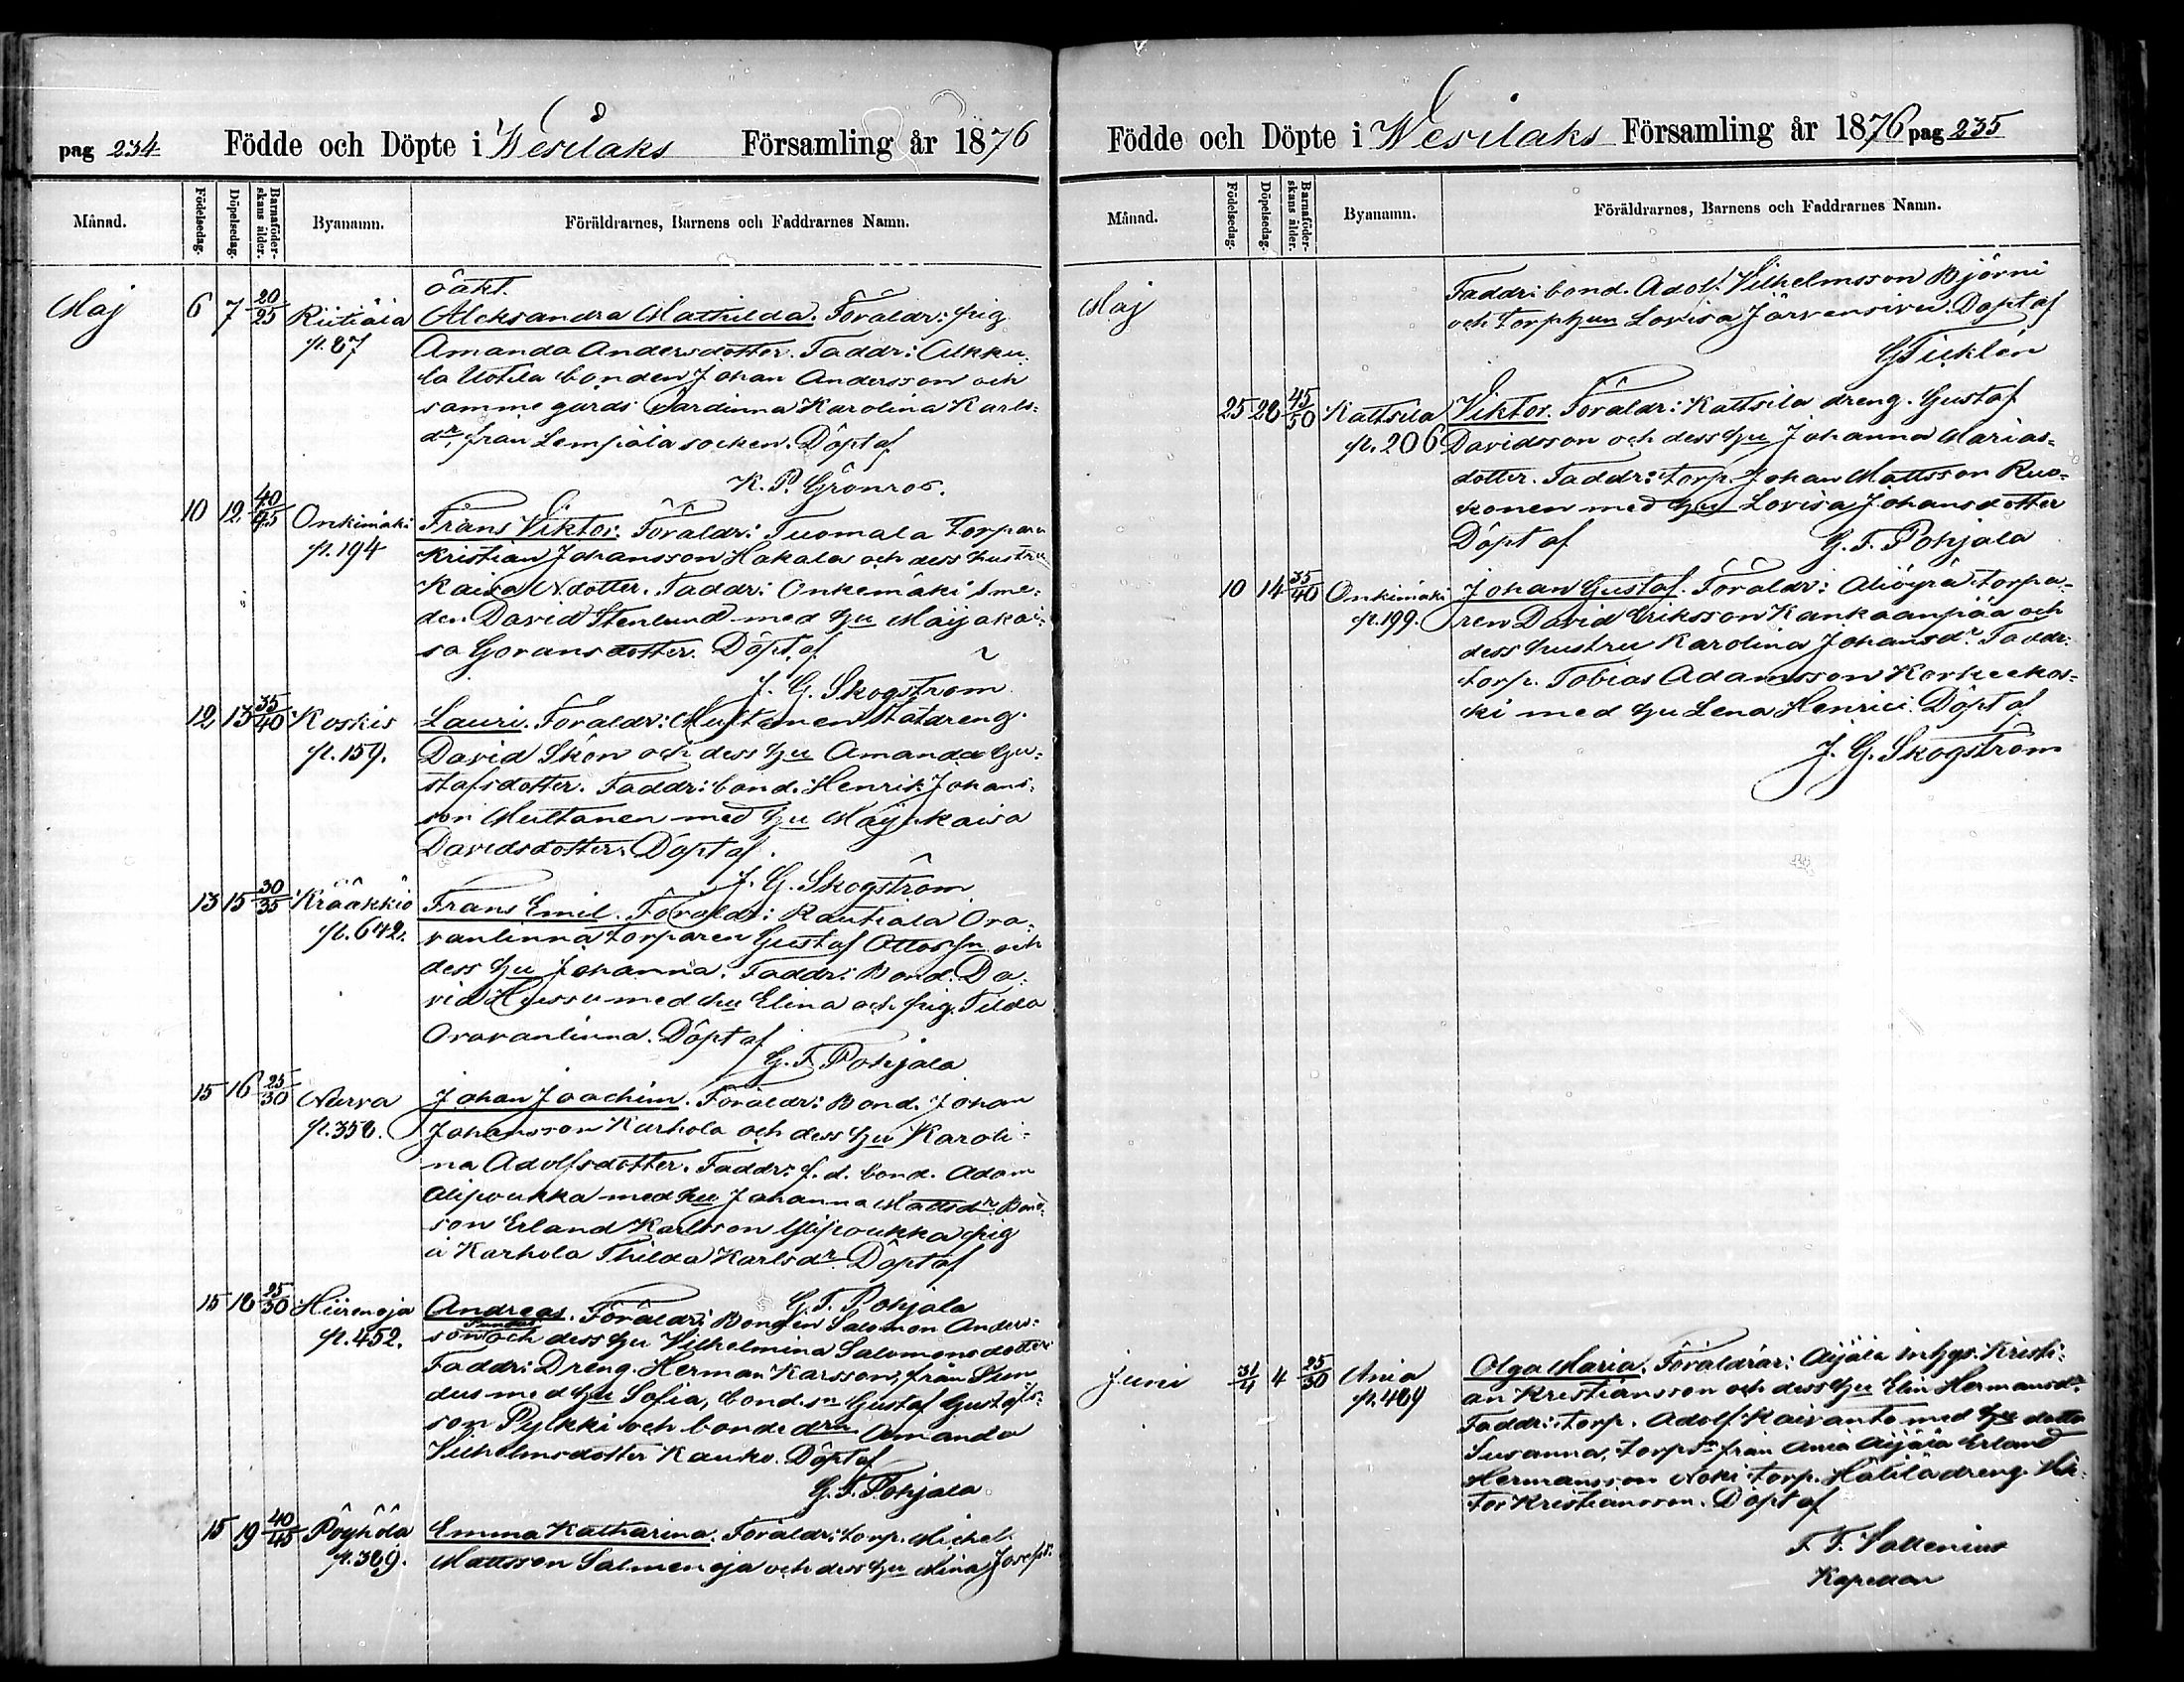 pag 234 Födde och Döpte i Wesilaks Församling år 1876
Månad. Födelsedag. Döpelsedag. Barnaföderskans ålder. Byanamn. Föräldrarnes, Barnens och Faddrarnes Namn.
oäkt.
Maj 6 7 20/25 Riitiälä Aleksandra Mathilda. Föräldr: pig.
p. 87 Amanda Andersdotter. Faddr: Akku-
la Uotila bonden Johan Andersson och
samme gårds värdinna Karolina Karls-
dr, från Lempäla socken. Döpt af
K. P. Grönroos.
10 12 40/45 Onkimäki Frans Viktor. Föräldr: Tuomala torparen
p. 194 Kristian Johansson Hakala och dess hustru
Kaisa Ndotter. Faddr: Onkemäki Sme-
den David Stenlund med hu Maijakai-
sa Göransdotter. Döpt af
J. G. Skogström
12 13 35/40 Koskis Lauri. Föräldr: Multanen Statdreng.
p. 159. David Skön och dess hu Amanda Gu-
stafsdotter. Faddr: bond. Henrik Johans-
son Multanen med hu Maijakaisa
Davidsdotter. Döpt af.
J. G. Skogström
13 15 30/35 Krääkkiö Frans Emil. Föräldr: Rautiala Ora-
p. 642. vanlinna torparen Gustaf Ottosson och
dess hu Johanna. Faddr: Bond. Da-
vid Hyssy med hu Elina och pig. Tilda
Oravanlinna. Döpt af
G. F. Pohjala
15 16 25/30 Narva Johan Joachim. Föräldr: Bond. Johan
p. 358. Johansson Karhola och dess hu Karoli-
na Adolfsdotter. Faddr: f. d. bond. Adam
Alipoukka med hu Johanna Mattsdr. Bond-
son Erland Karlsson Ylipoukka pig
å Karhola Thilda Karlsdr. Döpt af
G. F. Pohjala
15 18 25/30 Hiirenoja Andreas. Föräldr: Bonden Salomon Anders-
p. 452. son och dess hu Vilhelmina Salomonsdotter
Faddr: Dreng. Herman Karsson, från Sun-
dus med hu Sofia, bond.sn Gustaf Gustafs-
son Pylkki och bonde drn Amanda
Vilhelmsdotter Kauko. Döpt af
G. F. Pohjala
15 19 40/45 Pöyhölä Emma Katharina. Föräldr: torp. Michel
p. 389. Mattsson Salmenoja och dess hu Mina Josefs-
Födde och Döpte i Wesilaks Församling år 1876 pag 235
Månad. Födelsedag. Döpelsedag. Barnaföderskans ålder. Byanamn. Föräldrarnes, Barnens och Faddrarnes Namn.
Maj Faddr: bond. Adolf Vilhelmsson Björni
och torphun Lovisa Järvensivu. Döpt af
G Ticklén
25 28 45/50 Kaltsila Viktor. Föräldr: Kaltsila dreng. Gustaf
p. 206 Davidsson och dess hu Johanna Marias-
dotter. Faddr: torp. Johan Mattsson Ruo-
konen med hu Lovisa Johansdotter
Döpt af G. F. Pohjala
10 14 35/40 Onkimäki Johan Gustaf. Föräldr: Aliöyrä torpa-
p. 199. ren David Eriksson Kankaanpää och
dess hustru Karolina Johansdr. Faddr:
torp. Tobias Adamsson Korkeekos-
ki med hu Lena Henrici. Döpt af
J. G. Skogström
Juni 31/4 4 25/30 Ania Olga Maria. Föräldrar: Äijälä inhys. Kristi-
p. 489 an Kristiansson och dess hu Elin Hermansdr.
Faddr: torp. Adolf Kaivanto med hu dotter
Susanna, torpsn från Ania Äijälä Erland
Hermansson Noki torp. Hälilä dreng. Vik-
tor Kristiansson. Döpt af
F. F. Sallenius
Kapellan